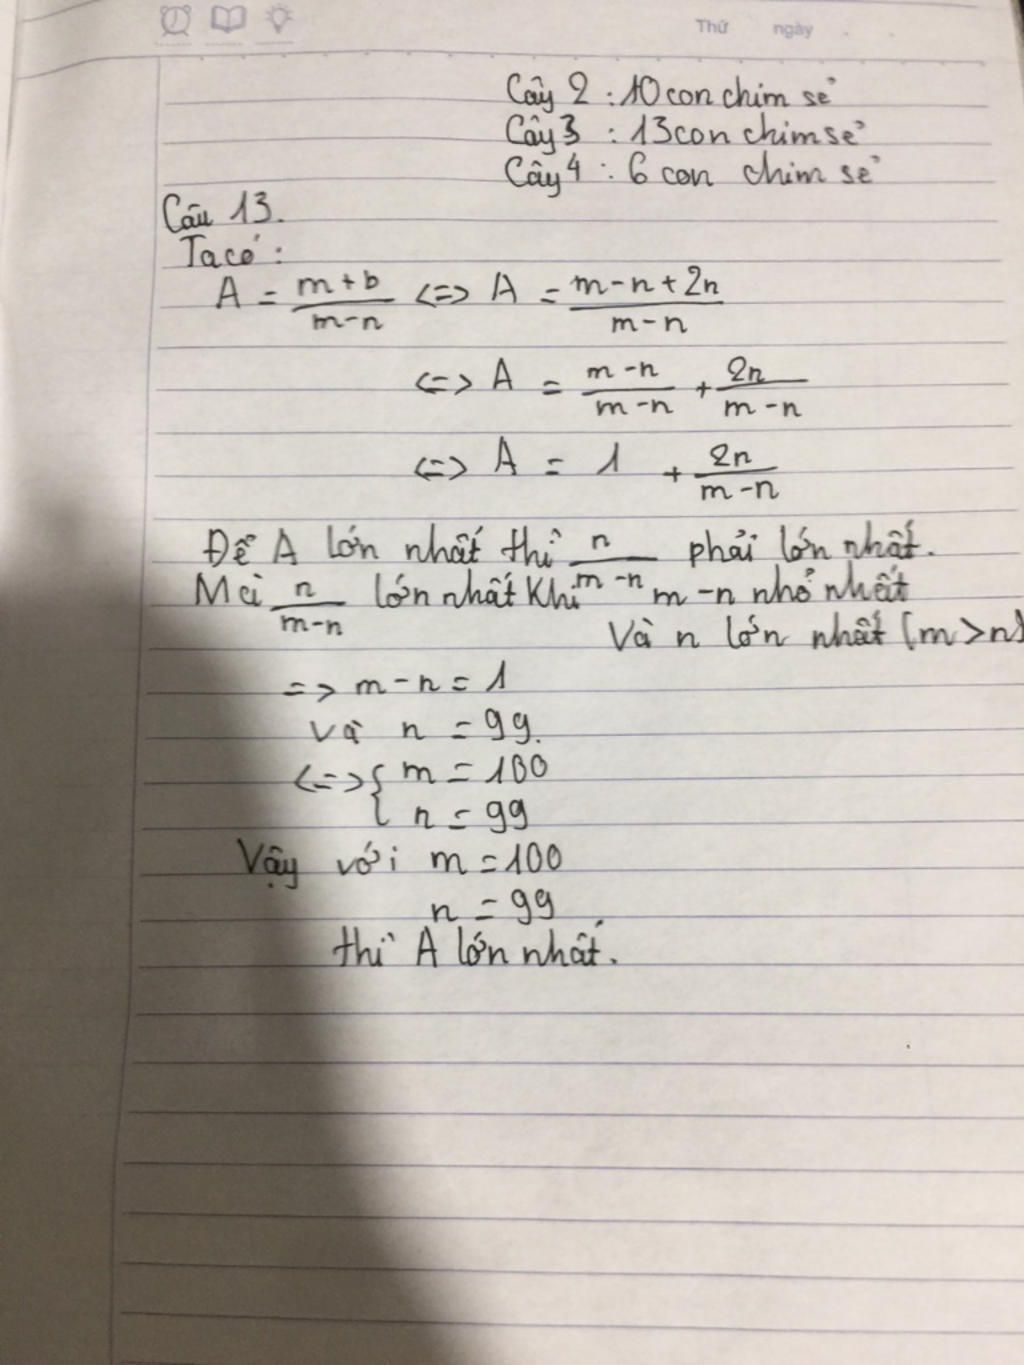 Thứ ngày
Cây 2 : 10 con chim sẻ
Cây 3 : 13 con chim sẻ
Cây 4 : 6 con chim sẻ
Câu 13.
Ta có :
A = \frac{m+b}{m-n} <=> A = \frac{m-n+2n}{m-n}
<=> A = \frac{m-n}{m-n} + \frac{2n}{m-n}
<=> A = 1 + \frac{2n}{m-n}
Để A lớn nhất thì \frac{n}{m-n} phải lớn nhất.
Mà \frac{n}{m-n} lớn nhất khi m-n nhỏ nhất
Và n lớn nhất (m>n)
=> m-n = 1
và n = 99.
<=> { m = 100
n = 99
Vậy với m = 100
n = 99
thì A lớn nhất.